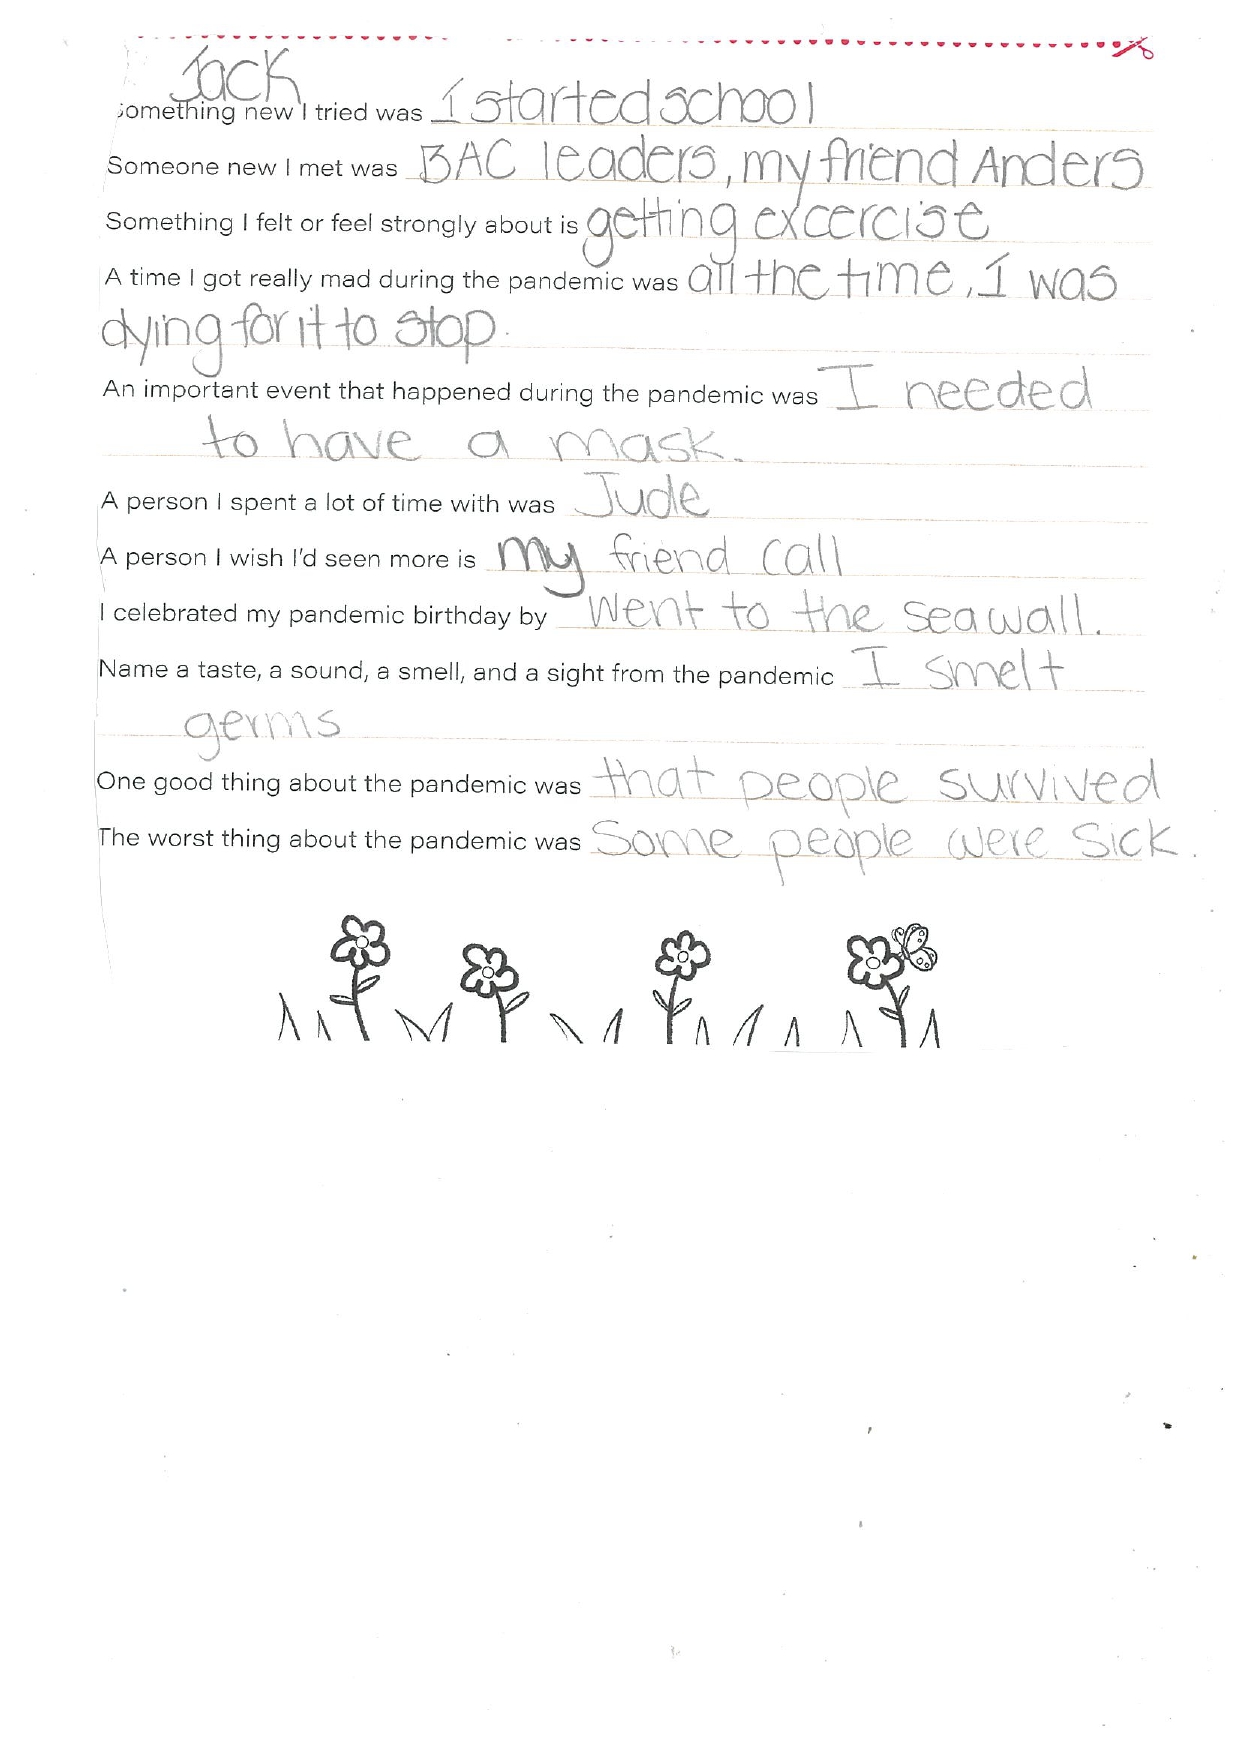 Jack
Something new I tried was I started school
Someone new I met was BAC leaders, my friend Anders
Something I felt or feel strongly about is getting excercise
A time I got really mad during the pandemic was all the time, I was
dying for it to stop.
An important event that happened during the pandemic was I needed
to have a mask.
A person I spent a lot of time with was Jude
A person I wish I'd seen more is my friend call
I celebrated my pandemic birthday by went to the seawall.
Name a taste, a sound, a smell, and a sight from the pandemic I smelt
germs
One good thing about the pandemic was that people survived
The worst thing about the pandemic was Some people were sick.